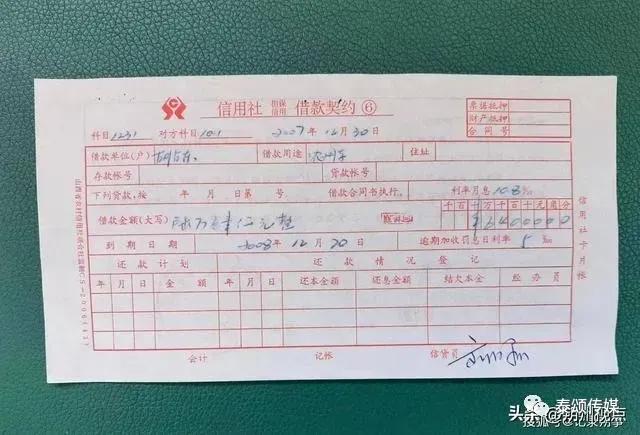 信用社 担保 信用 借款契约 ⑥
票据抵押
财产抵押
合同号
科目1231 对方科目101 2007年12月30日
借款单位(户) 借款用途 住址
存款帐号 贷款帐号
下列贷款,按 年 月 日第 号 借款合同书执行。 利率月息10.8‰
借款金额(大写) 陆万肆仟元整 千百十万千百十元角分
¥6400000
到期日期 2008年12月20日 逾期加收罚息日利率5‰
还款计划 还款情况登记
年 月 日 金额 年 月 日 还本金额 还息金额 结欠本金 经办员
会计 记帐 信贷员
信用社卡片帐
头条@朔州视点
泰颂传媒
搜狐号@记录朔事